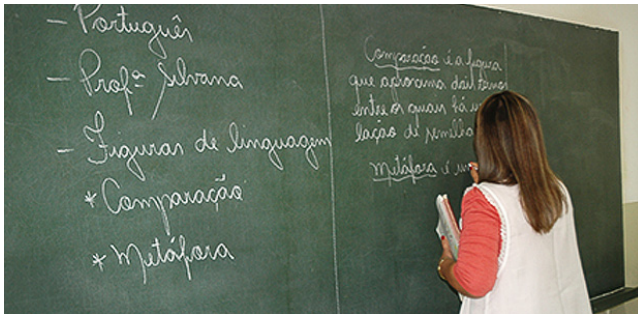 - Português
- Profª Silvana
- Figuras de linguagem
* Comparação
* Metáfora
Comparação é a figura
que aproxima dois termos
entre os quais há
lação de semelha
Metáfora é um